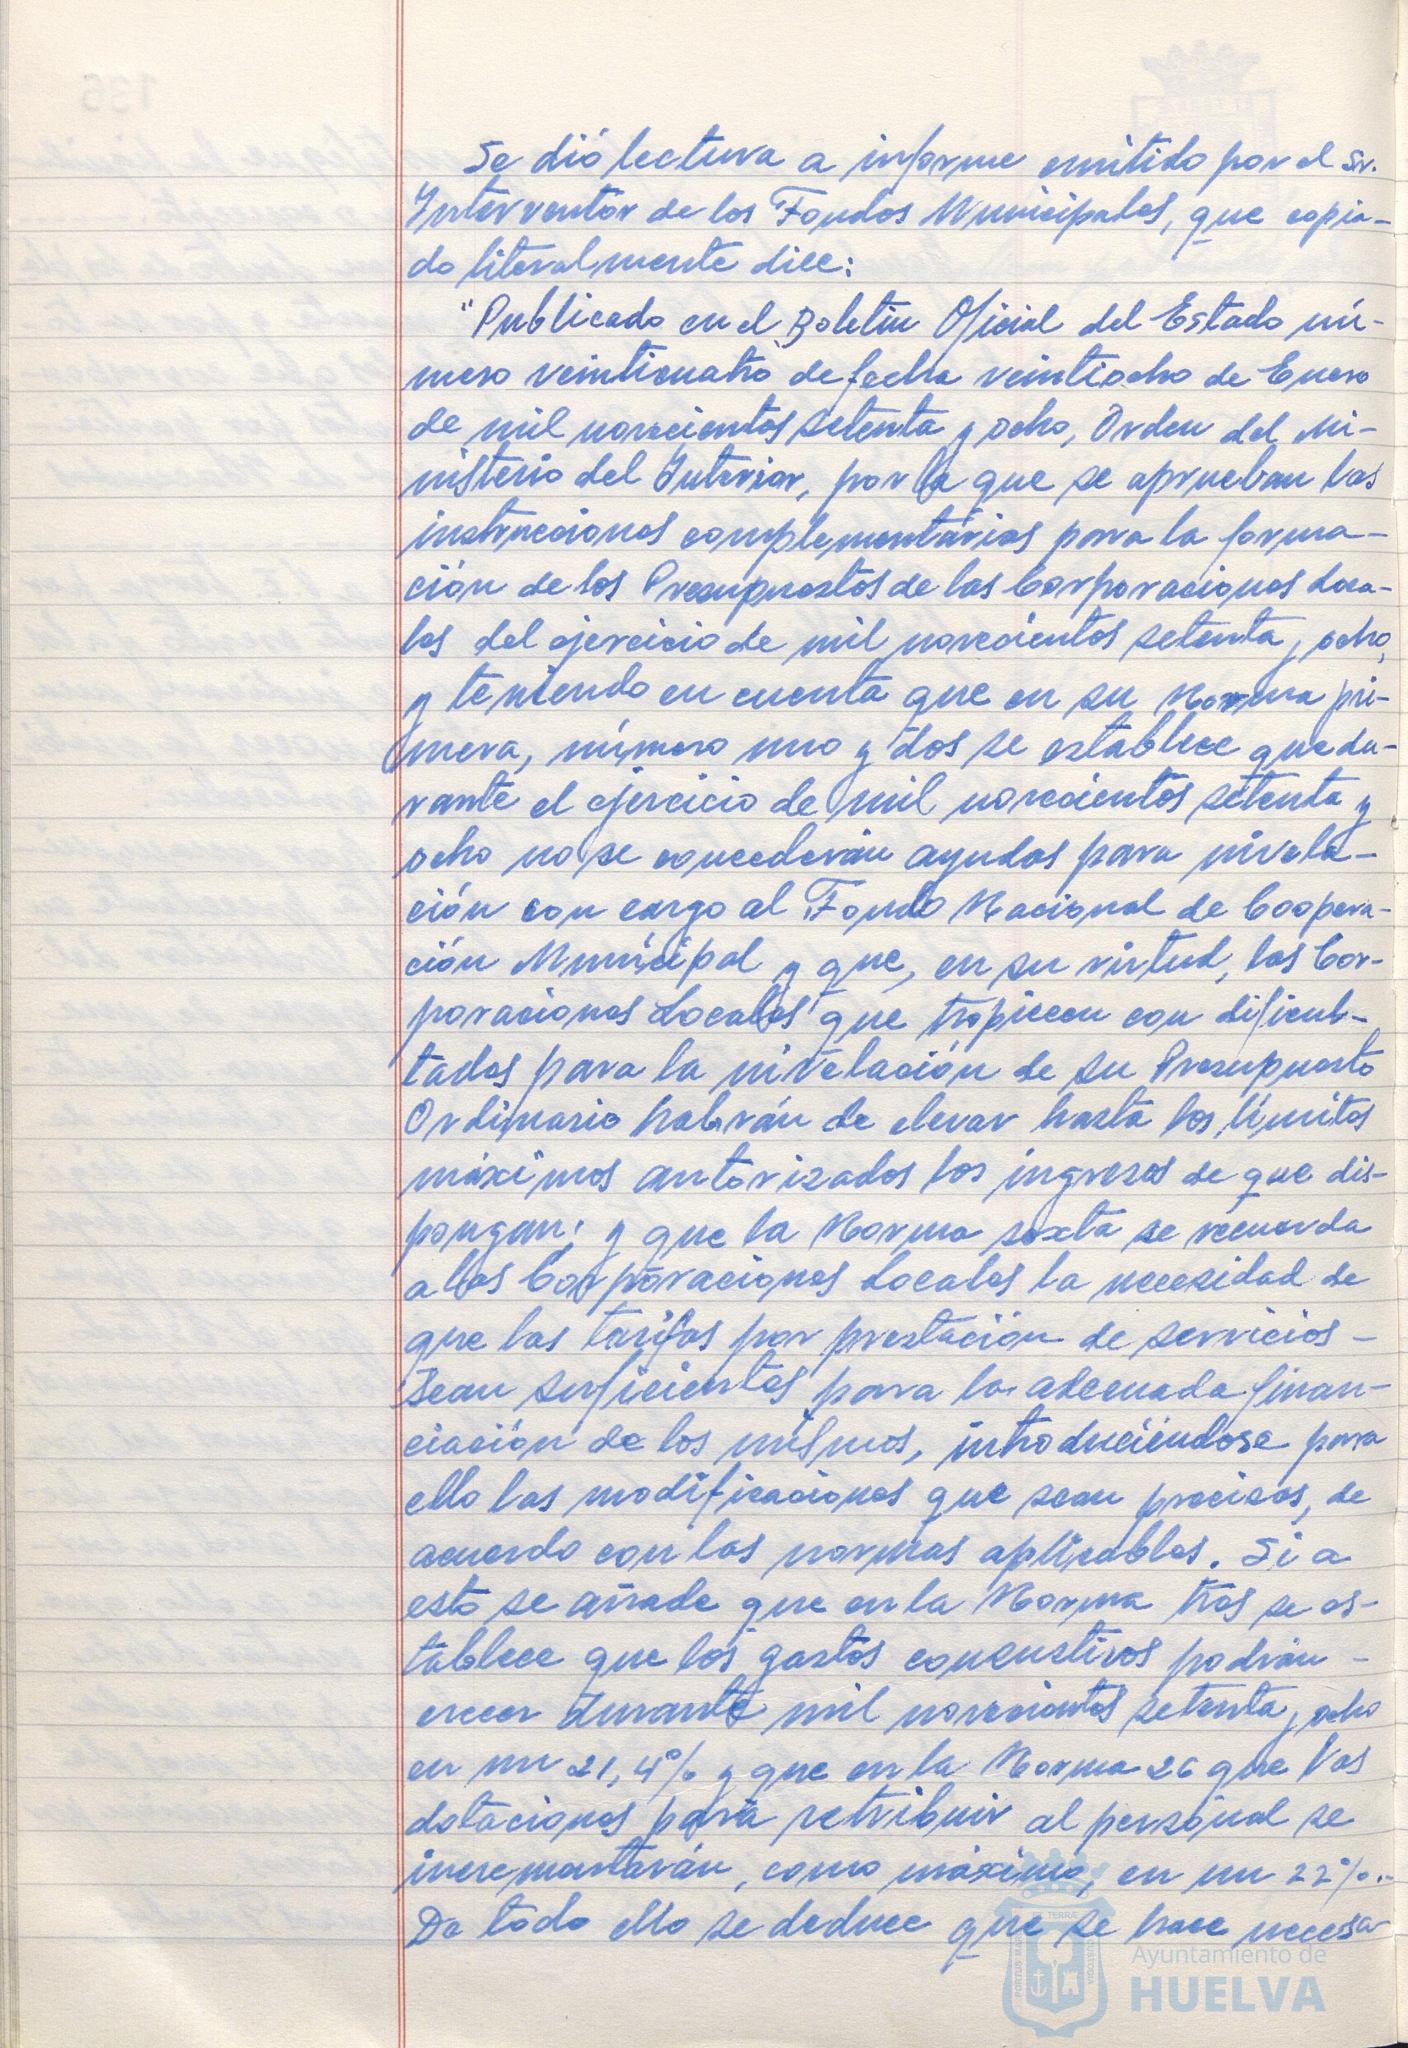 Se dió lectura a informe emitido por el Sr.
Interventor de los Fondos Municipales, que copia-
do literalmente dice:
"Publicado en el Boletin Oficial del Estado nú-
mero veinticuatro de fecha veintiocho de Enero
de mil novecientos setenta y ocho, Orden del Mi-
nisterio del Interior, por la que se aprueban las
instrucciones complementarias para la forma-
ción de los Presupuestos de las Corporaciones Loca-
les del ejercicio de mil novecientos setenta y ocho,
y teniendo en cuenta que en su Norma pri-
mera, número uno y dos se establece que du-
rante el ejercicio de mil novecientos setenta y
ocho no se concederán ayudas para nivela-
ción con cargo al Fondo Nacional de Coopera-
ción Municipal y que, en su virtud, las Cor-
poraciones Locales que tropiecen con dificul-
tades para la nivelación de su Presupuesto
Ordinario habrán de elevar hasta los límites
máximos autorizados los ingresos de que dis-
pongan; y que la Norma sexta se recuerda
a las Corporaciones Locales la necesidad de
que las tarifas por prestación de servicios -
sean suficientes para la adecuada finan-
ciación de los mismos, introduciéndose para
ello las modificaciones que sean precisas, de
acuerdo con las normas aplicables. Si a
esto se añade que en la Norma tres se es-
tablece que los gastos consuntivos podrán -
crecer durante mil novecientos setenta y ocho
en un 21,4% y que en la Norma 26 que las
dotaciones para retribuir al personal se
incrementarán, como máximo, en un 22%.-
De todo ello se deduce que se hace necesa-
Ayuntamiento de
HUELVA